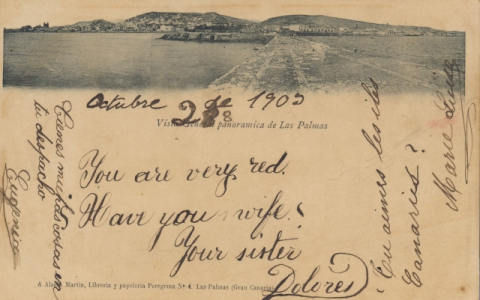 Octubre 28 de 1903
Vista General panoramica de Las Palmas
You are very red.
Have you wife?
Your sister
Dolores
Tienes muchas cosas en
tu despacho
Eugenia
Tu aimes les iles
Canaries?
Marie
Martin, Libreria y papeleria Peregrina Nº 4. Las Palmas (Gran Canaria